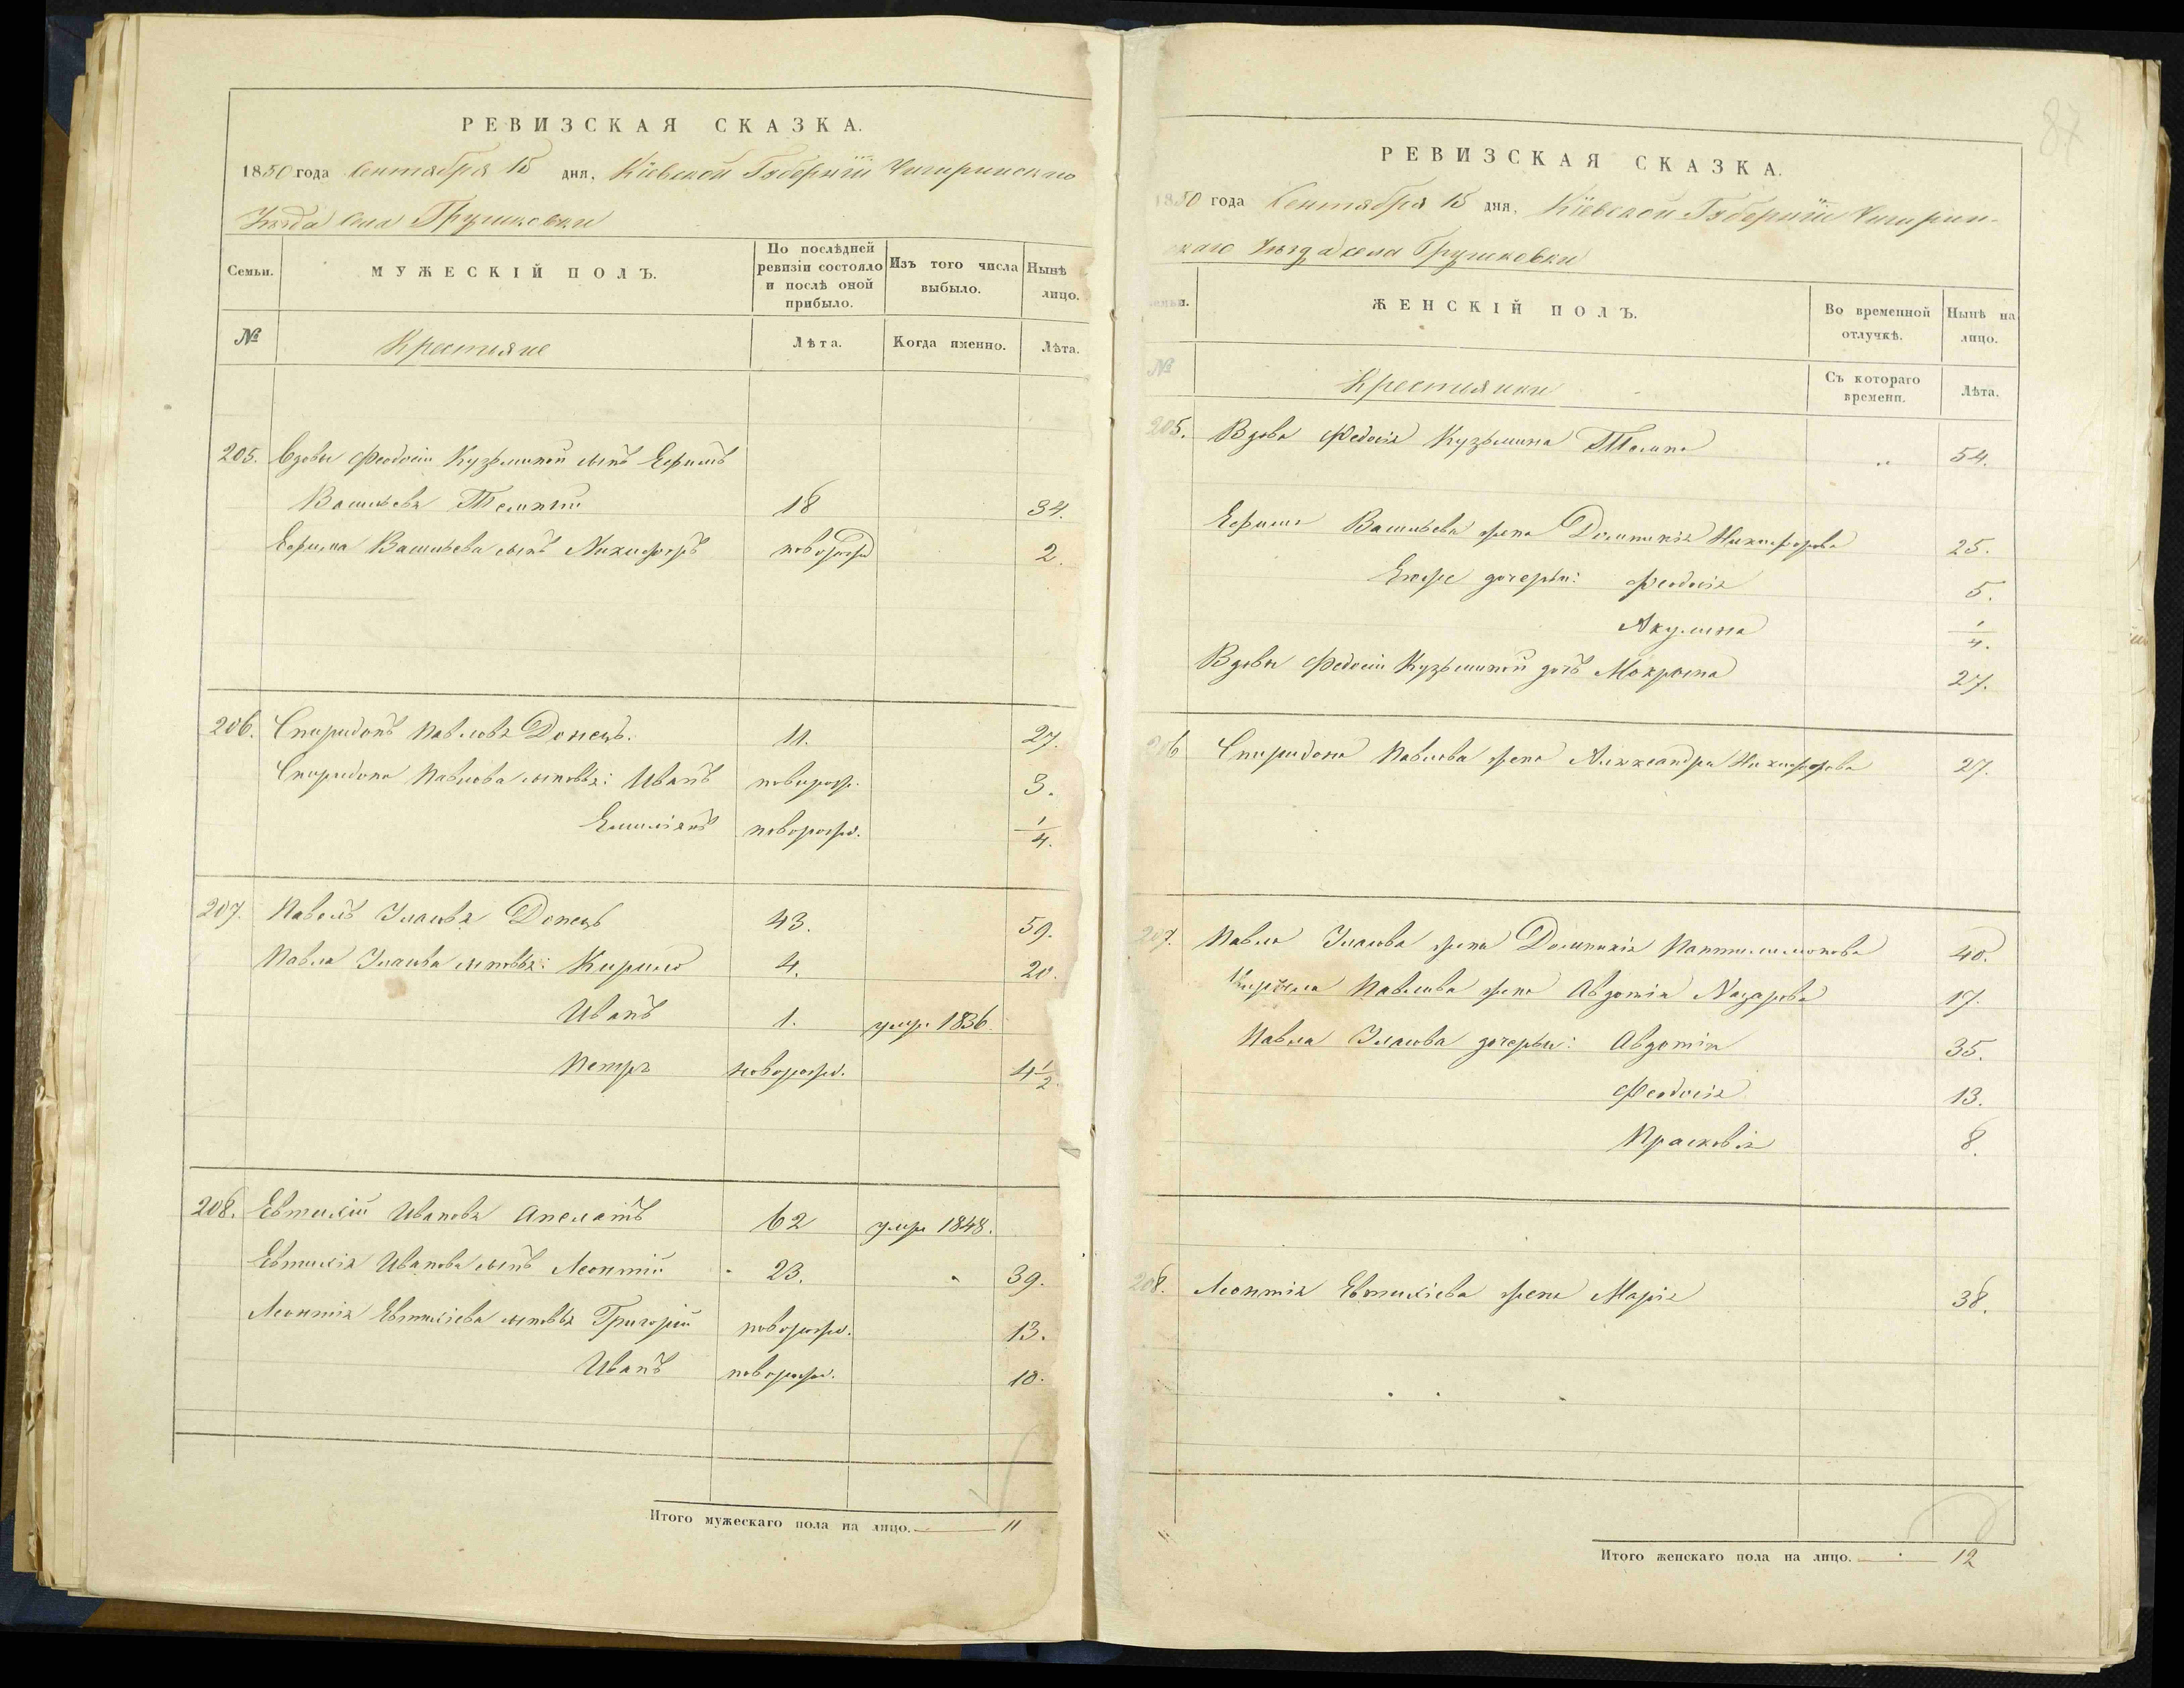 РЕВИЗСКАЯ СКАЗКА.
1850 года Сентября 15 дня, Кіевской Губерніи Чигиринскаго
Уѣзда села Грушковки
Семьи.
МУЖЕСКІЙ ПОЛЪ.
По послѣдней ревизіи состояло и послѣ оной прибыло.
Изъ того числа выбыло.
Нынѣ лицо.
№
Крестьяне
Лѣта.
Когда именно.
Лѣта.
205. Вдовы Феодосіи Кузьминой сынъ Ефимъ
Васильевъ 18 34.
Ефима Васильева сынъ Никифоръ новорожд 2.
206. Спиридонъ Павловъ Донецъ. 11. 27.
Спиридона Павлова сыновья: Иванъ новорож. 3.
Емиліянъ новорожд. 1/4.
207. Павелъ Донецъ 43. 59.
Павла сыновья: Кирило 4. 20.
Иванъ 1. умр. 1836.
Петръ новорожд. 4 1/2.
208. Евтихій Ивановъ Апелатъ 62 умр 1848.
Евтихія Иванова сынъ Леонтій 23. 39.
Леонтія Евтихіева сыновья Григорій новорожд. 13.
Иванъ новорожд. 10.
Итого мужескаго пола на лицо. 11
87
РЕВИЗСКАЯ СКАЗКА.
1850 года Сентября 15 дня, Кіевской Губерніи Чигирин-
скаго Уѣзда села Грушковки
ЖЕНСКІЙ ПОЛЪ.
Во временной отлучкѣ.
Нынѣ на лицо.
№
Крестьянки
Съ котораго времени.
Лѣта.
205. Вдова Федосія Кузьмина 54.
Ефима Васильева жена Домникія Никифорова 25.
Егоже дочери: Феодосія 5.
Акулина 1/4.
Вдовы Федосіи Кузьминой дочь Мокрина 27.
206 Спиридона Павлова жена Александра Никифорова 27.
207. Павла жена Домникія Пантилимонова 40.
Кирила Павлова жена Авдотія Назарова 17.
Павла дочери: Авдотія 35.
Феодосія 13.
Прасковія 8.
208. Леонтія Евтихіева жена Марія 38.
Итого женскаго пола на лицо. 12